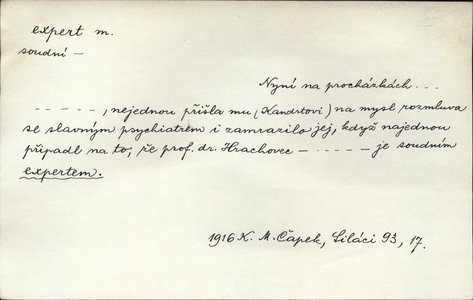 expert m.
soudní –
Nyní na procházkách . . .
– – – – –, nejednou přišla mu (Kandrtovi) na mysl rozmluva
se slavným psychiatrem i zamrazilo jej, když najednou
připadl na to, že prof. dr. Hrachovec – – – – – – je soudním
expertem.
1916 K. M. Čapek, Siláci 93, 17.